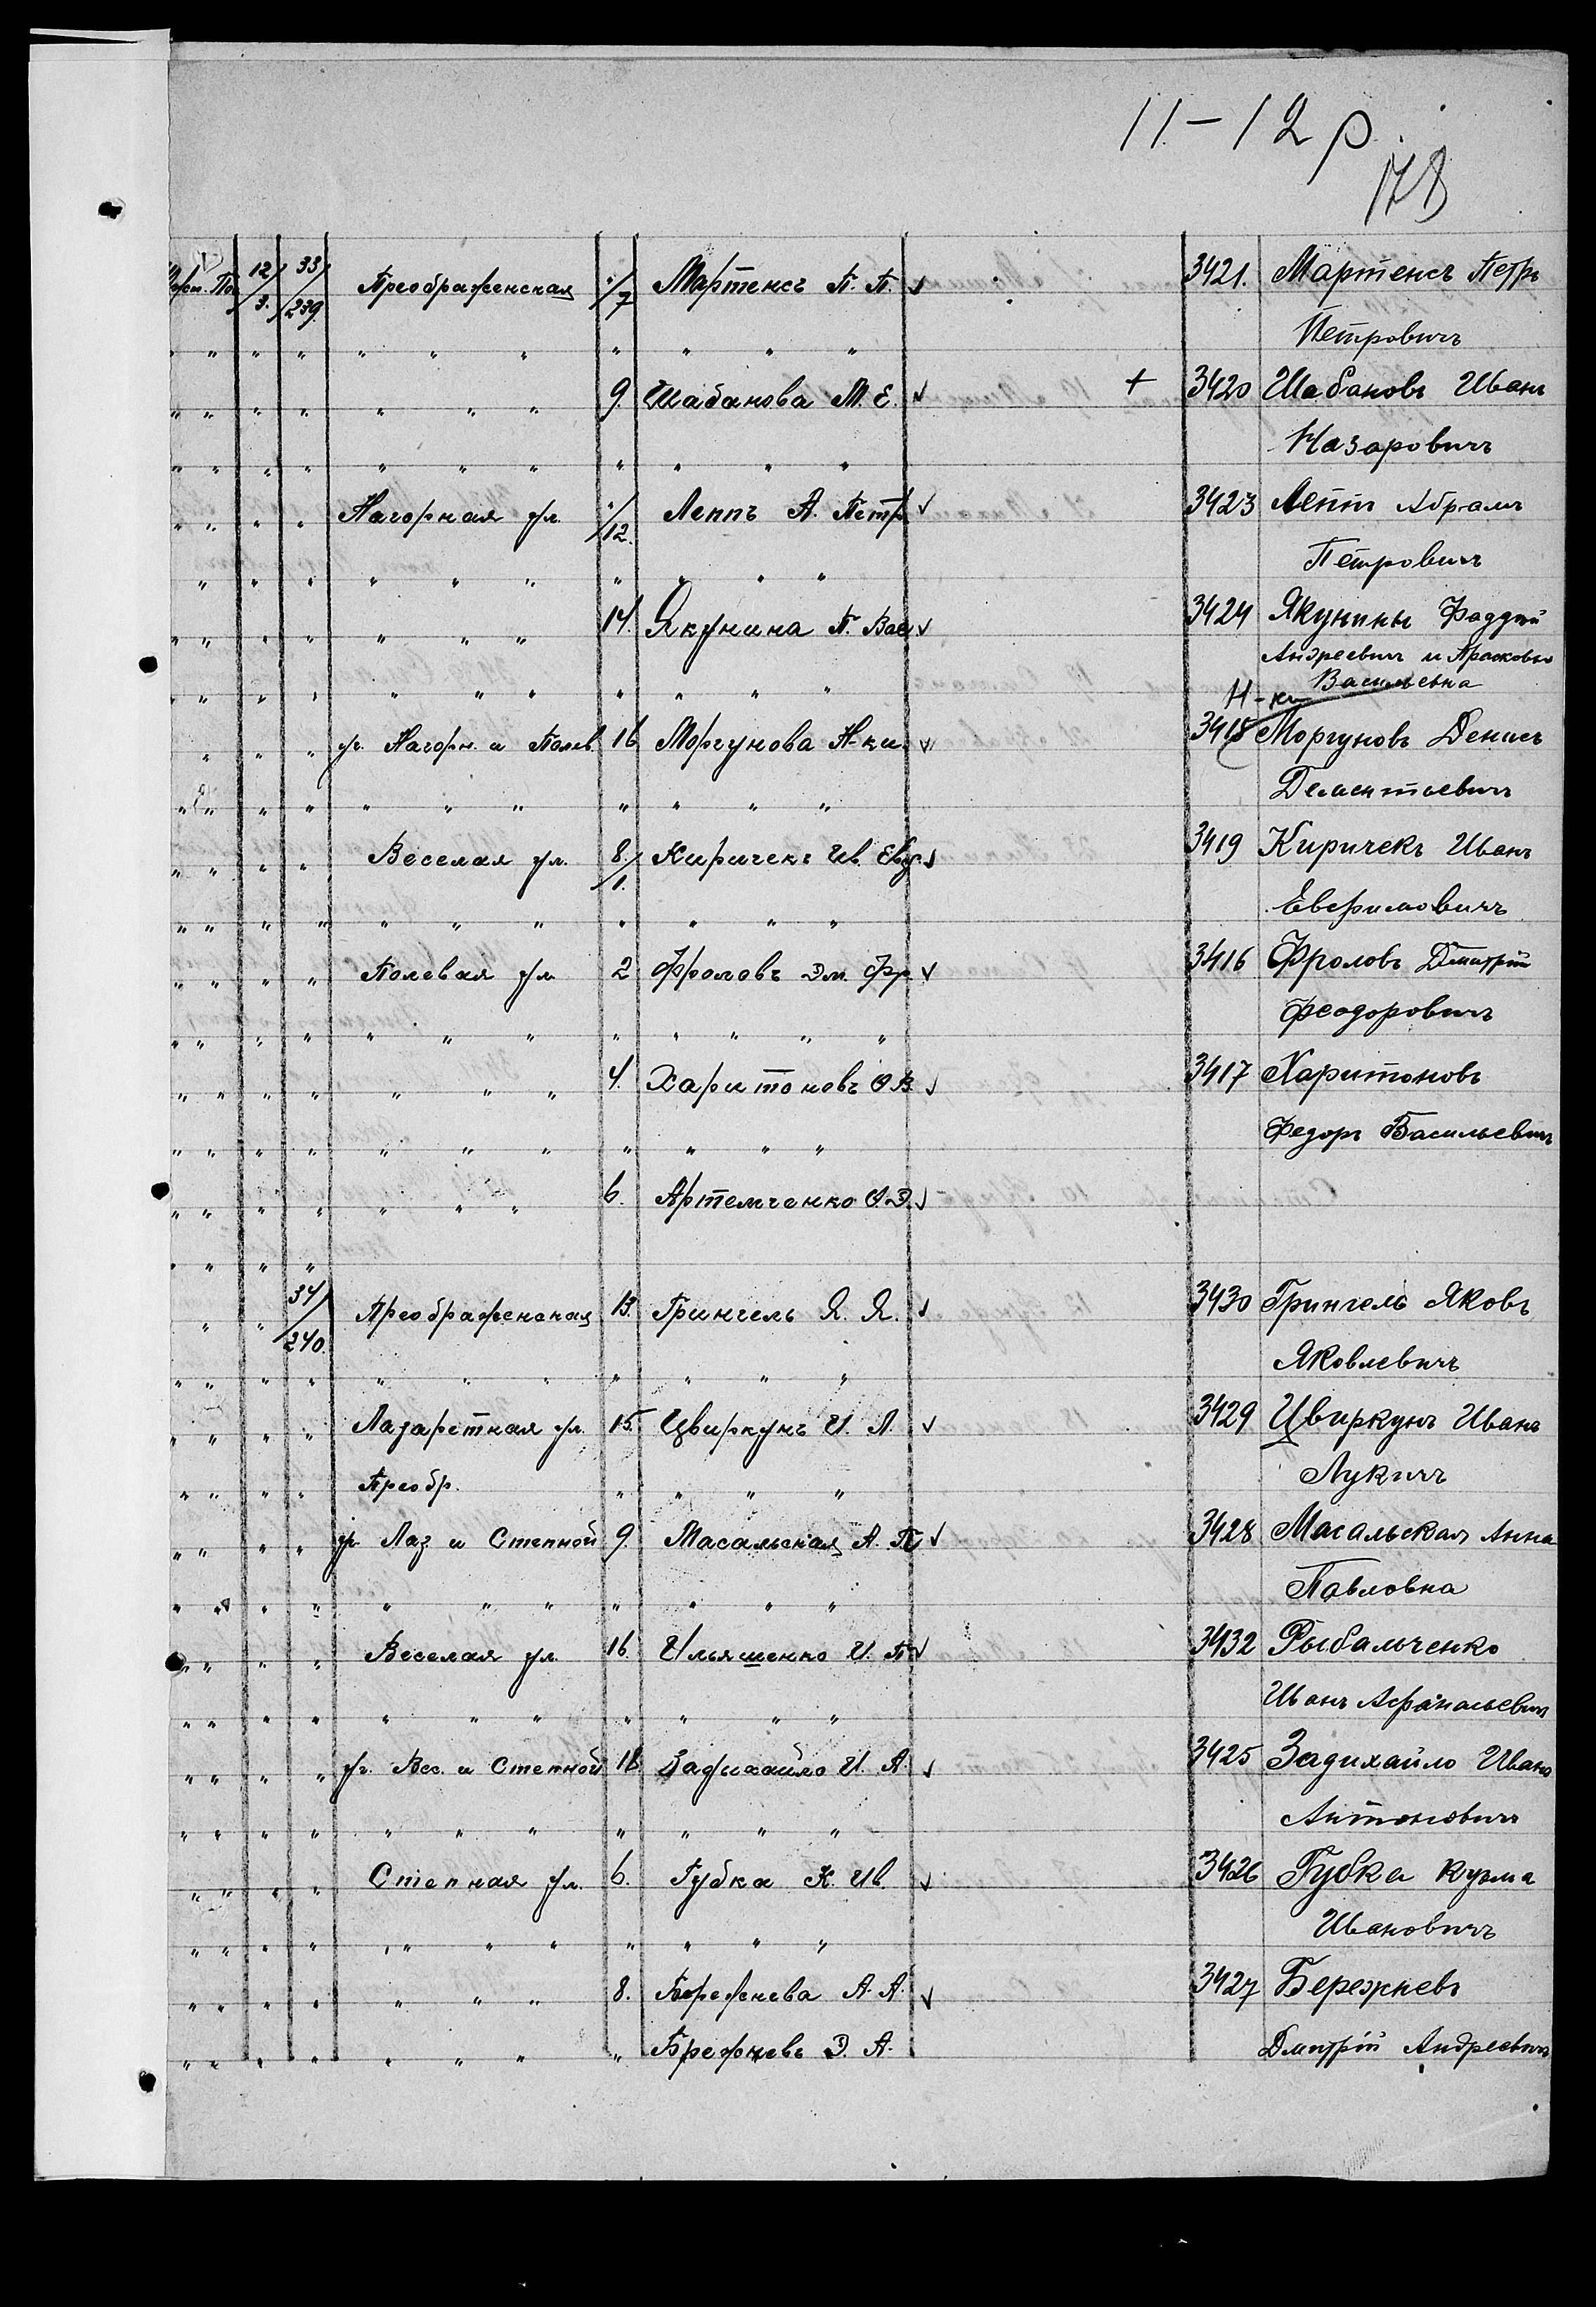 11-12 р.
178
12/3. 33/239. Преображенская /7 Мартенсъ П. П. ✓ 3421. Мартенсъ Петръ
" " " " " " " " " " " Петровичъ
" " " " " " " 9. Шабанова М. Е. ✓ + 3420 Шабановъ Иванъ
" " " " " " " " " " " Назаровичъ
" " " " Нагорная ул. /12. Леппъ А. Петр ✓ 3423 Леппъ Абрамъ
" " " " " " " " " " Петровичъ
" " " " " " " 14. Якунина П. Вас ✓ 3424 Якунины Фаддей
Андреевичъ и Прасковья
" " " " " " " " " " " Васильевна
Н-ки
" " " уг. Нагорн. и Полев. 16 Моргунова Н-ки ✓ 3418 Моргуновъ Денисъ
" " " " " " " " " " " Дементьевичъ
" " " " Веселая ул. 8./1. Киричекъ Ив. Евф. ✓ 3419 Киричекъ Иванъ
" " " " " " " " " " " Евфимовичъ
" " " " Полевая ул. 2 Фроловъ Дм. Фр. ✓ 3416 Фроловъ Дмитрій
" " " " " " " " " " " " Феодоровичъ
" " " " " " " 4. Харитоновъ Ѳ. В. ✓ 3417 Харитоновъ
" " " " " " " " " " " Федоръ Васильевичъ
" " " " " " " 6. Артемченко Ѳ. Д. ✓
" " " "
" " 34/240. Преображенская 13. Гринчель Я. Я. ✓ 3430 Гринчель Яковъ
" " " " " " " " " " " Яковлевичъ
" " " " Лазаретная ул. 15. Цвиркунъ И. Л. ✓ 3429 Цвиркунъ Иванъ
" " " " Преобр. " " " " Лукичъ
" " " " уг. Лаз и Степной 9. Масальская А. П. ✓ 3428 Масальская Анна
" " " " " " " " " " " Павловна
" " " " Веселая ул. 16. Ильяшенко И. П. ✓ 3432 Рыбальченко
" " " " " " " " " " " Иванъ Афанасьевичъ
" " " " уг. Вес. и Степной 18 Задихайло И. А. ✓ 3425 Задихайло Иванъ
" " " " " " " " " " " Антоновичъ
" " " " Степная ул. 6. Губка К. Ив. ✓ 3426 Губка Кузьма
" " " " " " " " " " " Ивановичъ
" " " " " " " 8. Бережнева А. А. ✓ 3427 Бережневъ
" " " " " " " " Брежневъ Д. А. Дмитрій Андреевичъ